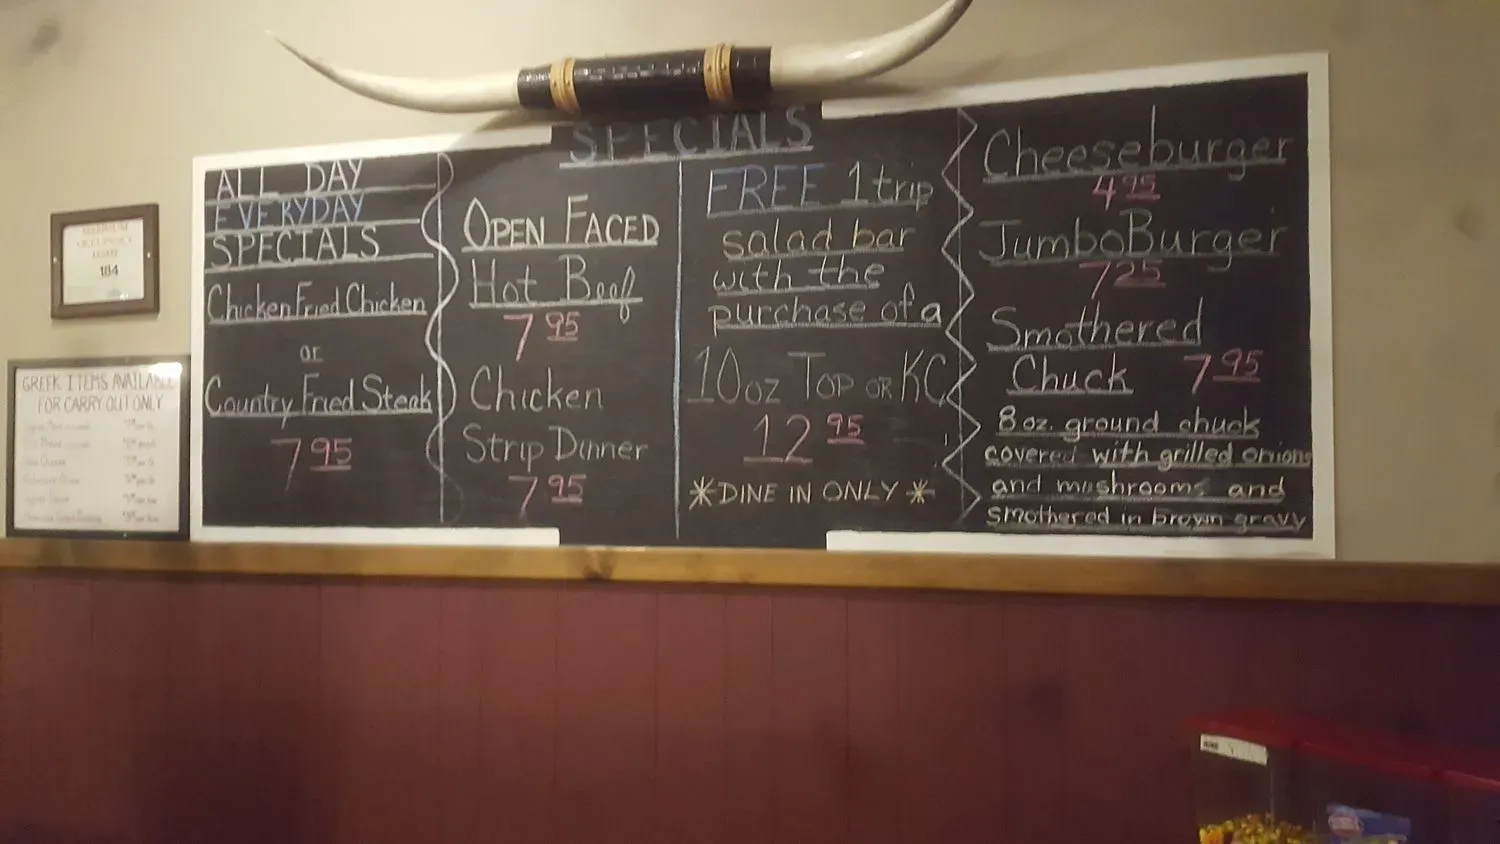 SPECIALS
ALL DAY
EVERYDAY
SPECIALS
Chicken Fried Chicken
or
Country Fried Steak
7 95
OPEN FACED
HOT BEEF
7 95
Chicken
Strip Dinner
7 95
FREE 1 trip
salad bar
with the
purchase of a
10oz TOP OR KC
12 95
*DINE IN ONLY*
Cheeseburger
4 95
JumboBurger
7 25
Smothered
Chuck 7 95
8 oz. ground chuck
covered with grilled onions
and mushrooms and
smothered in brown gravy
MAXIMUM
OCCUPANCY
184
GREEK ITEMS AVAILABLE
FOR CARRY OUT ONLY